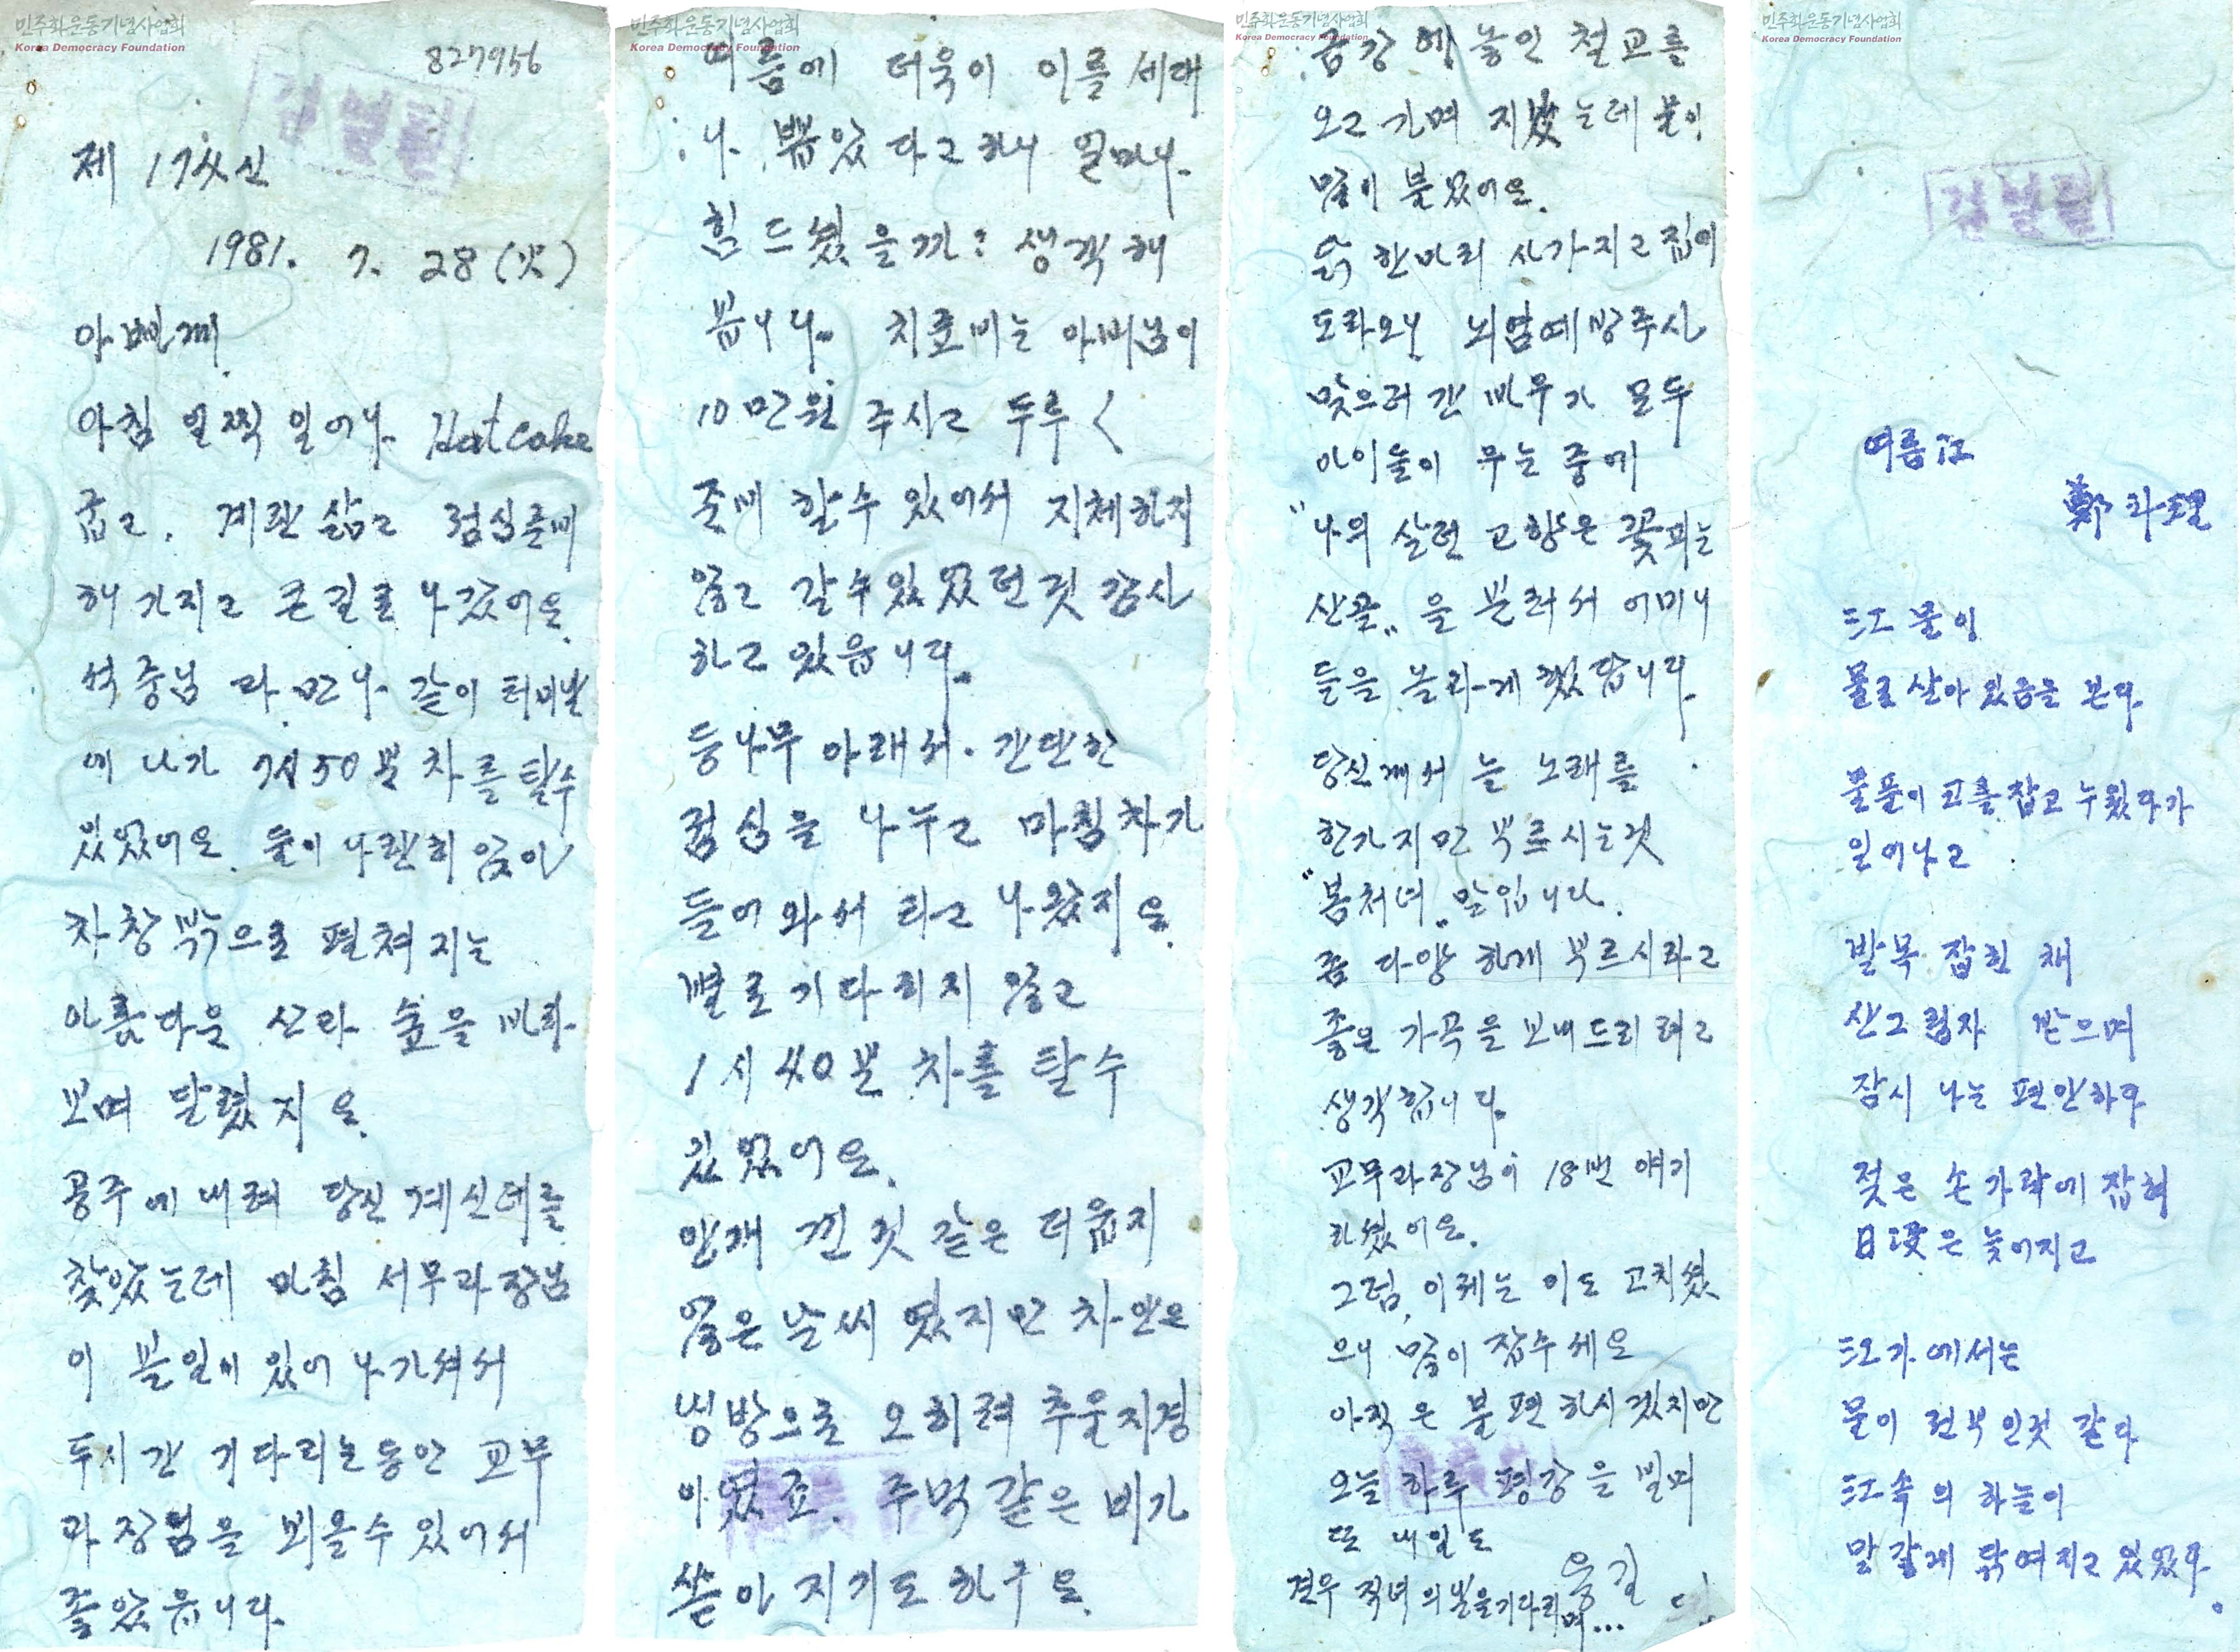 민주화운동기념사업회
Korea Democracy Foundation
827956
검열필
제 17신
1981. 7. 28 (火)
아빠께.
아침 일찍 일어나 Hotcake
굽고. 계란 삶고 점심준비
해 가지고 큰길로 나갔어요.
석중님 과 만나 같이 터미날
에 나가 7시50분 차를 탈수
있었어요. 둘이 나란히 앉아
차창 밖으로 펼쳐 지는
아름다운 산과 숲을 바라
보며 달렸지요.
공주에 내려 당신 계신데를
찾았는데 마침 서무과장님
이 볼일이 있어 나가셔서
두시간 기다리는동안 교무
과장님을 뵈올수 있어서
좋았읍니다.
민주화운동기념사업회
Korea Democracy Foundation
여름에 더욱이 이를 세대
나 뽑았다고 하니 얼마나
힘드셨을까? 생각해
봅니다. 치료비는 아버님이
10만원 주시고 두루〈
준비 할수 있어서 지체하지
않고 갈수있었던것 감사
하고 있읍니다.
등나무 아래서. 간단한
점심을 나누고 마침차가
들어와서 타고 나왔지요.
별로 기다리지 않고
1시 40분 차를 탈수
있었어요.
안개 낀것 같은 더웁지
않은 날씨 였지만 차안은
냉방으로 오히려 추울지경
이였죠. 주먹 같은 비가
쏟아 지기도 하구요.
민주화운동기념사업회
Korea Democracy Foundation
금강에 놓인 철교를
오고 가며 지났는데 물이
많이 불었어요.
닭 한마리 사가지고 집에
도라오니 뇌염예방주사
맞으러 간 바우가 모두
아이들이 우는 중에
"나의 살던 고향은 꽃피는
산골„을 불러서 어미니
들을 놀라게 했답니다.
당신께서 는 노래를
한가지만 부르시는것
"봄처녀„ 말입니다.
좀 다양 하게 부르시라고
좋은 가곡을 보내드리려고
생각합니다.
교무과장님이 18번 얘기
하셨어요.
그럼, 이제는 이도 고치셨
으니 많이 잡수세요
아직은 불편 하시겠지만
오늘 하루 평강을 빌며
또 내일도
견우 직녀의 날을기다리며...
용길
민주화운동기념사업회
Korea Democracy Foundation
검열필
여름江
鄭
江물이
물로 살아 있음을 본다
물풀이 고를 잡고 누웠다가
일어나고
발목 잡힌 채
산그림자 받으며
잠시 나는 편안하다
젖은 손가락에 잡혀
日沒은 늦어지고
江가에서는
물이 전부인것 같다
江속의 하늘이
말갛게 닦여지고 있었다.